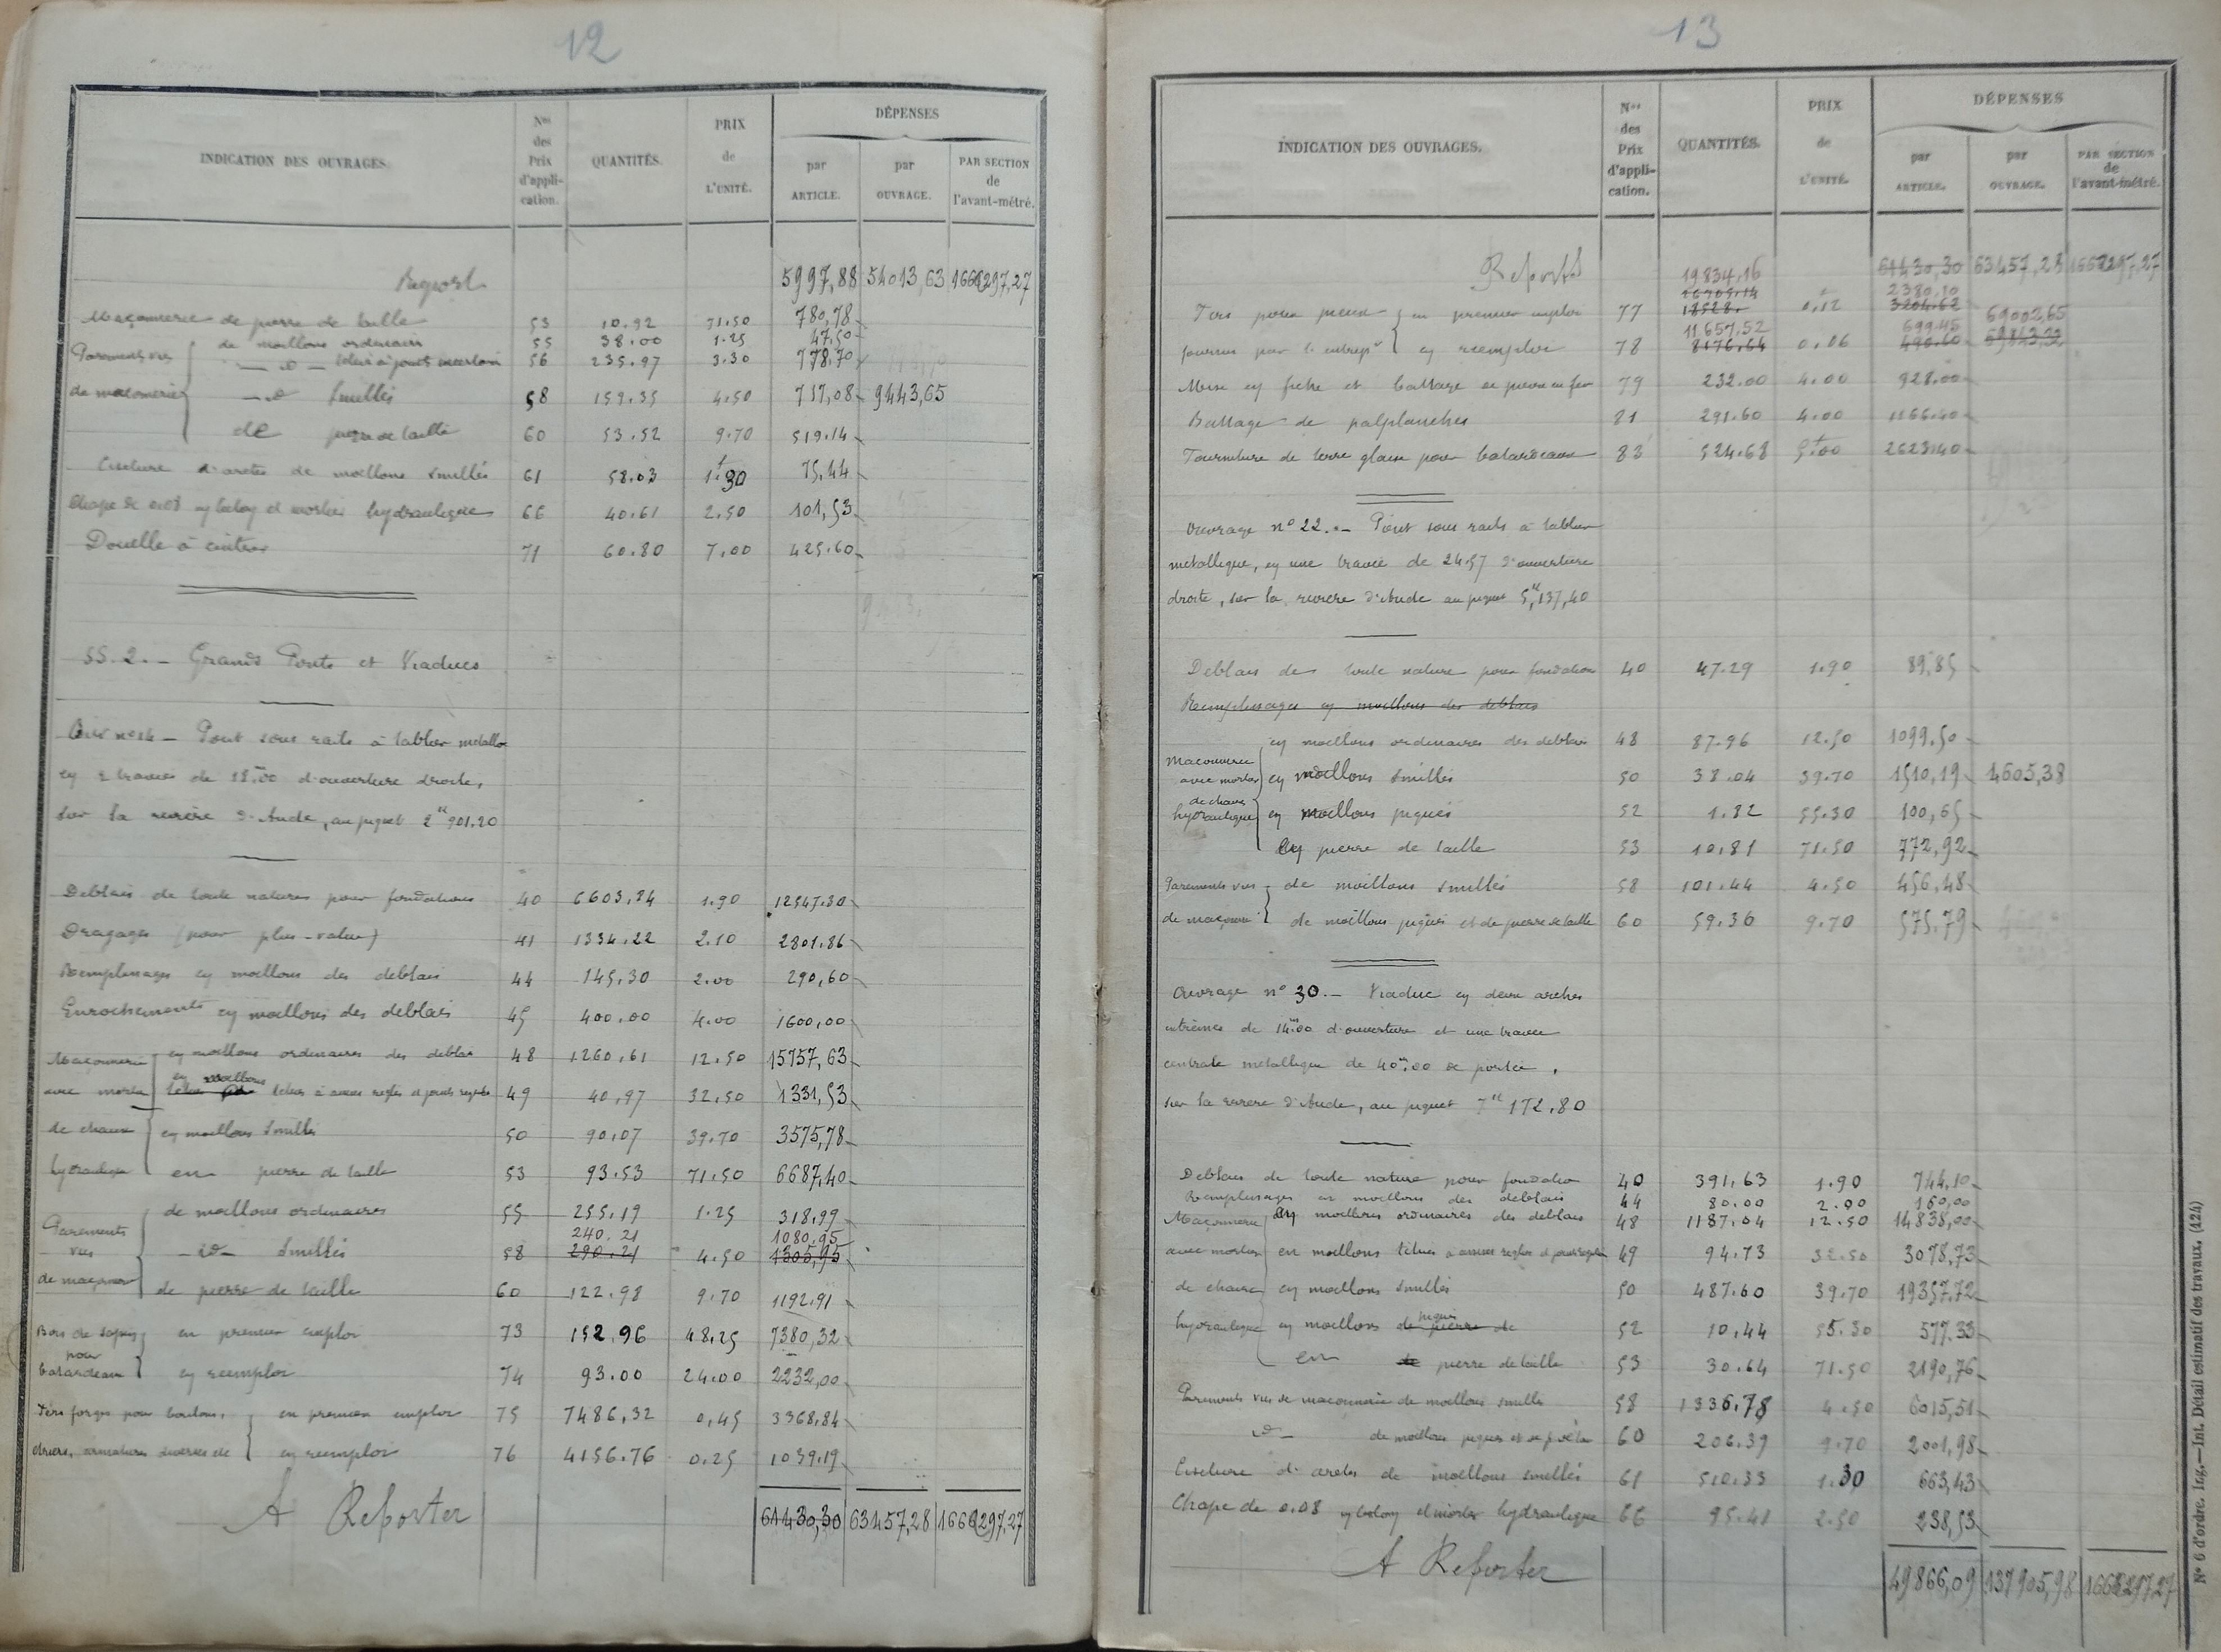 12
INDICATION DES OUVRAGES. Nos des Prix d'appli-cation. QUANTITÉS. PRIX de L'UNITÉ. DÉPENSES par ARTICLE. par OUVRAGE. PAR SECTION de l'avant-métré.
Report 5997,88 54013,63 166297,27
Maçonnerie de pierre de taille 53 10.92 71.50 780,78
Parements vus de moellons ordinaires 55 38.00 1.25 47,50
— d — têtués à joints incertains 56 235.97 3.30 778.70
de maçonnerie — d — smillés 58 159.35 4.50 717,08 9443,65
de pierre de taille 60 53.52 9.70 519.14
Ciselure d'arêtes de moellons smillés 61 58.03 1.30 75,44
Chape de 0.08 en béton et mortier hydraulique 66 40.61 2.50 101,53
Douelle à cintrer 71 60.80 7.00 425.60
§§.2._ Grands Ponts et Viaducs
Pont sous rails à tablier métallique
en 2 travées de 18m00 d'ouverture droite,
sur la rivière d'Aude, au piquet 2K901.20
Déblais de toute nature pour fondations 40 6603,84 1.90 12547.30
Dragages (pour plus-value) 41 1334.22 2.10 2801.86
Remplissages en moellons des déblais 44 145,30 2.00 290,60
Enrochements en moellons des déblais 45 400.00 4.00 1600,00
Maçonnerie en moellons ordinaires des déblais 48 1260,61 12.50 15757,63
avec mortier en moellons têtués à assises réglées et joints 49 40,97 32.50 1331,53
de chaux en moellons smillés 50 90.07 39.70 3575,78
hydraulique en pierre de taille 53 93.53 71.50 6687,40
Parements de moellons ordinaires 55 255.19 1.25 318,99
240.21 1080.95
vus — d — smillés 58 290.21 4.50 1305,95
de maçonnerie de pierre de taille 60 122.98 9.70 1192.91
Bois de sapin en premier emploi 73 152.96 48.25 7380,32
pour
batardeaux en réemploi 74 93.00 24.00 2232,00
Fers forgés pour boulons, en premier emploi 75 7486,32 0,45 3368,84
étriers, armatures diverses etc en réemploi 76 4156.76 0.25 1039.19
A Reporter 61430,30 63457,28 166297,27
13
INDICATION DES OUVRAGES. Nos des Prix d'appli-cation. QUANTITÉS. PRIX de L'UNITÉ. DÉPENSES par ARTICLE. par OUVRAGE. PAR SECTION de l'avant-métré.
Report 61430,30 63457,28 166297,27
19834,16 2380,10
Fers pour pieux en premier emploi 77 0,12 3204.62 69002,65
11.657,52 699.45
fournis par l'entrepr en réemploi 78 8176,64 0,06 490.60 69843,22
Mise en fiche et battage de pieux en fer 79 232.00 4.00 928.00
Battage de palplanches 81 291.60 4.00 1166.40
Fourniture de terre glaise pour batardeaux 83 524.68 5.00 2623.40
Ouvrage n° 22._ Pont sous rails à tablier
métallique, en une travée de 24.57 d'ouverture
droite, sur la rivière d'Aude au piquet 5K137,40
Déblais de toute nature pour fondation 40 47.29 1.90 89,85
Remplissages en moellons des déblais
en moellons ordinaires des déblais 48 87.96 12.50 1099.50
Maçonnerie avec mortier en moellons smillés 50 38.04 39.70 1510,19 4605,38
de chaux hydraulique en moellons piqués 52 1.82 55.30 100,65
en pierre de taille 53 10.81 71.50 772,92
Parements vus de moellons smillés 58 101.44 4.50 456,48
de maçonn. de moellons piqués et de pierre de taille 60 59.36 9.70 575.79
Ouvrage n° 30._ Viaduc en deux arches
extrêmes de 14m00 d'ouverture et une travée
centrale métallique de 40m00 de portée,
sur la rivière d'Aude, au piquet 7K172.80
Déblais de toute nature pour fondation 40 391,63 1.90 744,10
Remplissages en moellons des déblais 44 80.00 2.00 160,00
Maçonnerie en moellons ordinaires des déblais 48 1187.04 12.50 14838,00
avec mortier en moellons têtués à assises réglées et joints 49 94.73 32.50 3078,73
de chaux en moellons smillés 50 487.60 39.70 19357,72
hydraulique en moellons de pierre de piqués 52 10,44 55.30 577.33
en de pierre de taille 53 30.64 71.50 2190,76
Parements vus de maçonnerie de moellons smillés 58 1336,78 4.50 6015,51
— d — de moellons piqués et de p. de t. 60 206.39 9.70 2001,98
Ciselure d'arêtes de moellons smillés 61 510.33 1.30 663,43
Chape de 0.08 en béton et mortier hydraulique 66 95.41 2.50 238,53
A Reporter 49866,09 137905,98 166297,27
N° 6 d'ordre. Ing.—Int. Détail estimatif des travaux. (424)